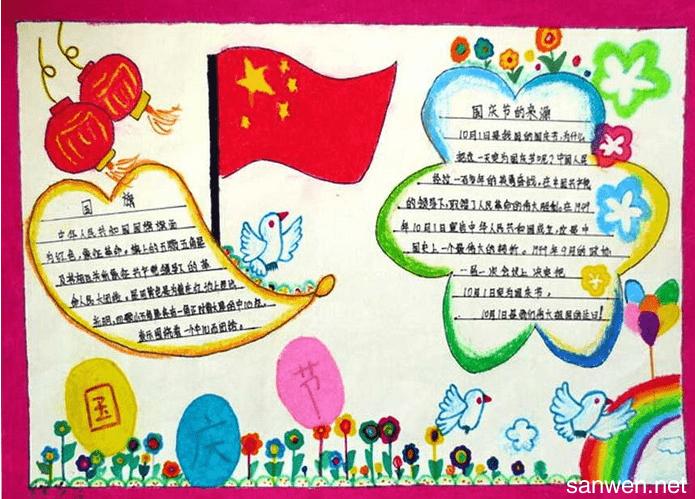 国旗
中华人民共和国国旗旗面
为红色，象征革命，旗上的五颗五角星
及其相互关系象征共产党领导下的革
命人民大团结。星用黄色是为着在红地上显出
光明，四颗小五角星各有一角正对着大星的中心点，
表示围绕着一个中心而团结。
国庆节的来源
10月1日是我国的国庆节，为什么
把这一天定为国庆节呢？中国人民
经过一百多年的英勇奋战，在中国共产党
的领导下，取得了人民革命的伟大胜利。在1949
年10月1日宣告中华人民共和国成立，这是中
国史上一个最伟大的转折。1949年9月的政协
一届一次会议上决定把
10月1日定为国庆节。
10月1日是我们伟大祖国的生日！
国
庆
节
sanwen.net